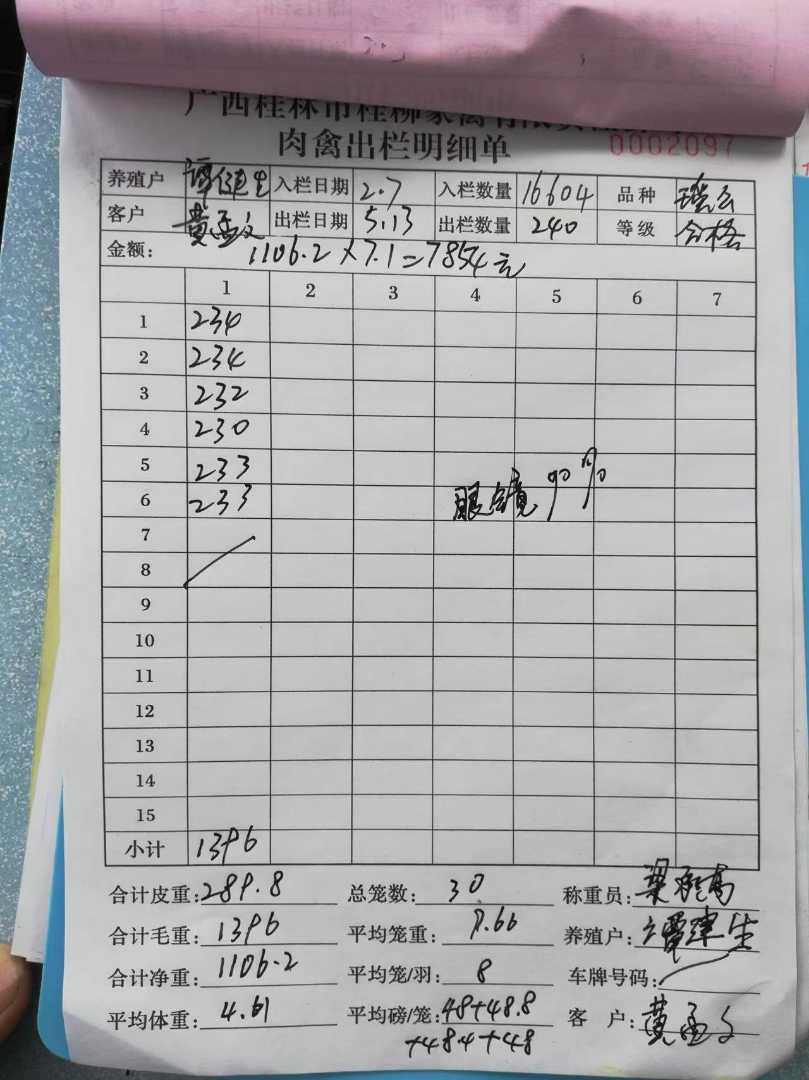 广西桂林市桂柳家禽有限责任
肉禽出栏明细单 0002097
养殖户 谭建生 入栏日期 2.7 入栏数量 16604 品种
客户 黄孟文 出栏日期 5.13 出栏数量 240 等级 合格
金额: 1106.2×7.1=7854元
1 2 3 4 5 6 7
1 234
2 234
3 232
4 230
5 233
6 233
眼镜 90%
7
8
9
10
11
12
13
14
15
小计 1396
合计皮重: 289.8 总笼数: 30 称重员:
合计毛重: 1396 平均笼重: 9.66 养殖户: 谭建生
合计净重: 1106.2 平均笼/羽: 8 车牌号码:
平均体重: 4.61 平均磅/笼: 48+48.8 客 户: 黄孟文
+48.4+48